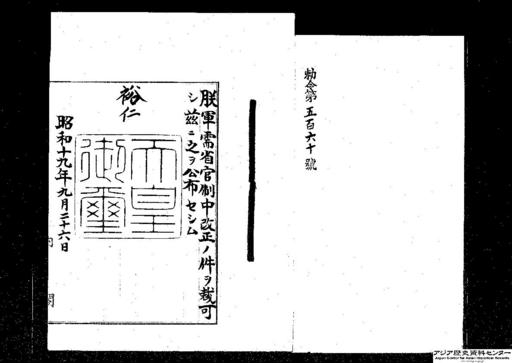 勅令第五百六十號
朕軍需省官制中改正ノ件ヲ裁可
シ茲ニ之ヲ公布セシム
裕仁
天皇
御璽
昭和十九年九月二十六日
アジア歴史資料センター
Japan Center for Asian Historical Records